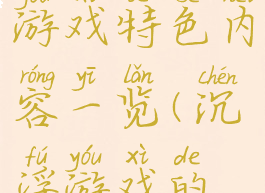 游戏特色内
róng yī lǎn chén
容一览(沉
fú yóu xì de
浮游戏的